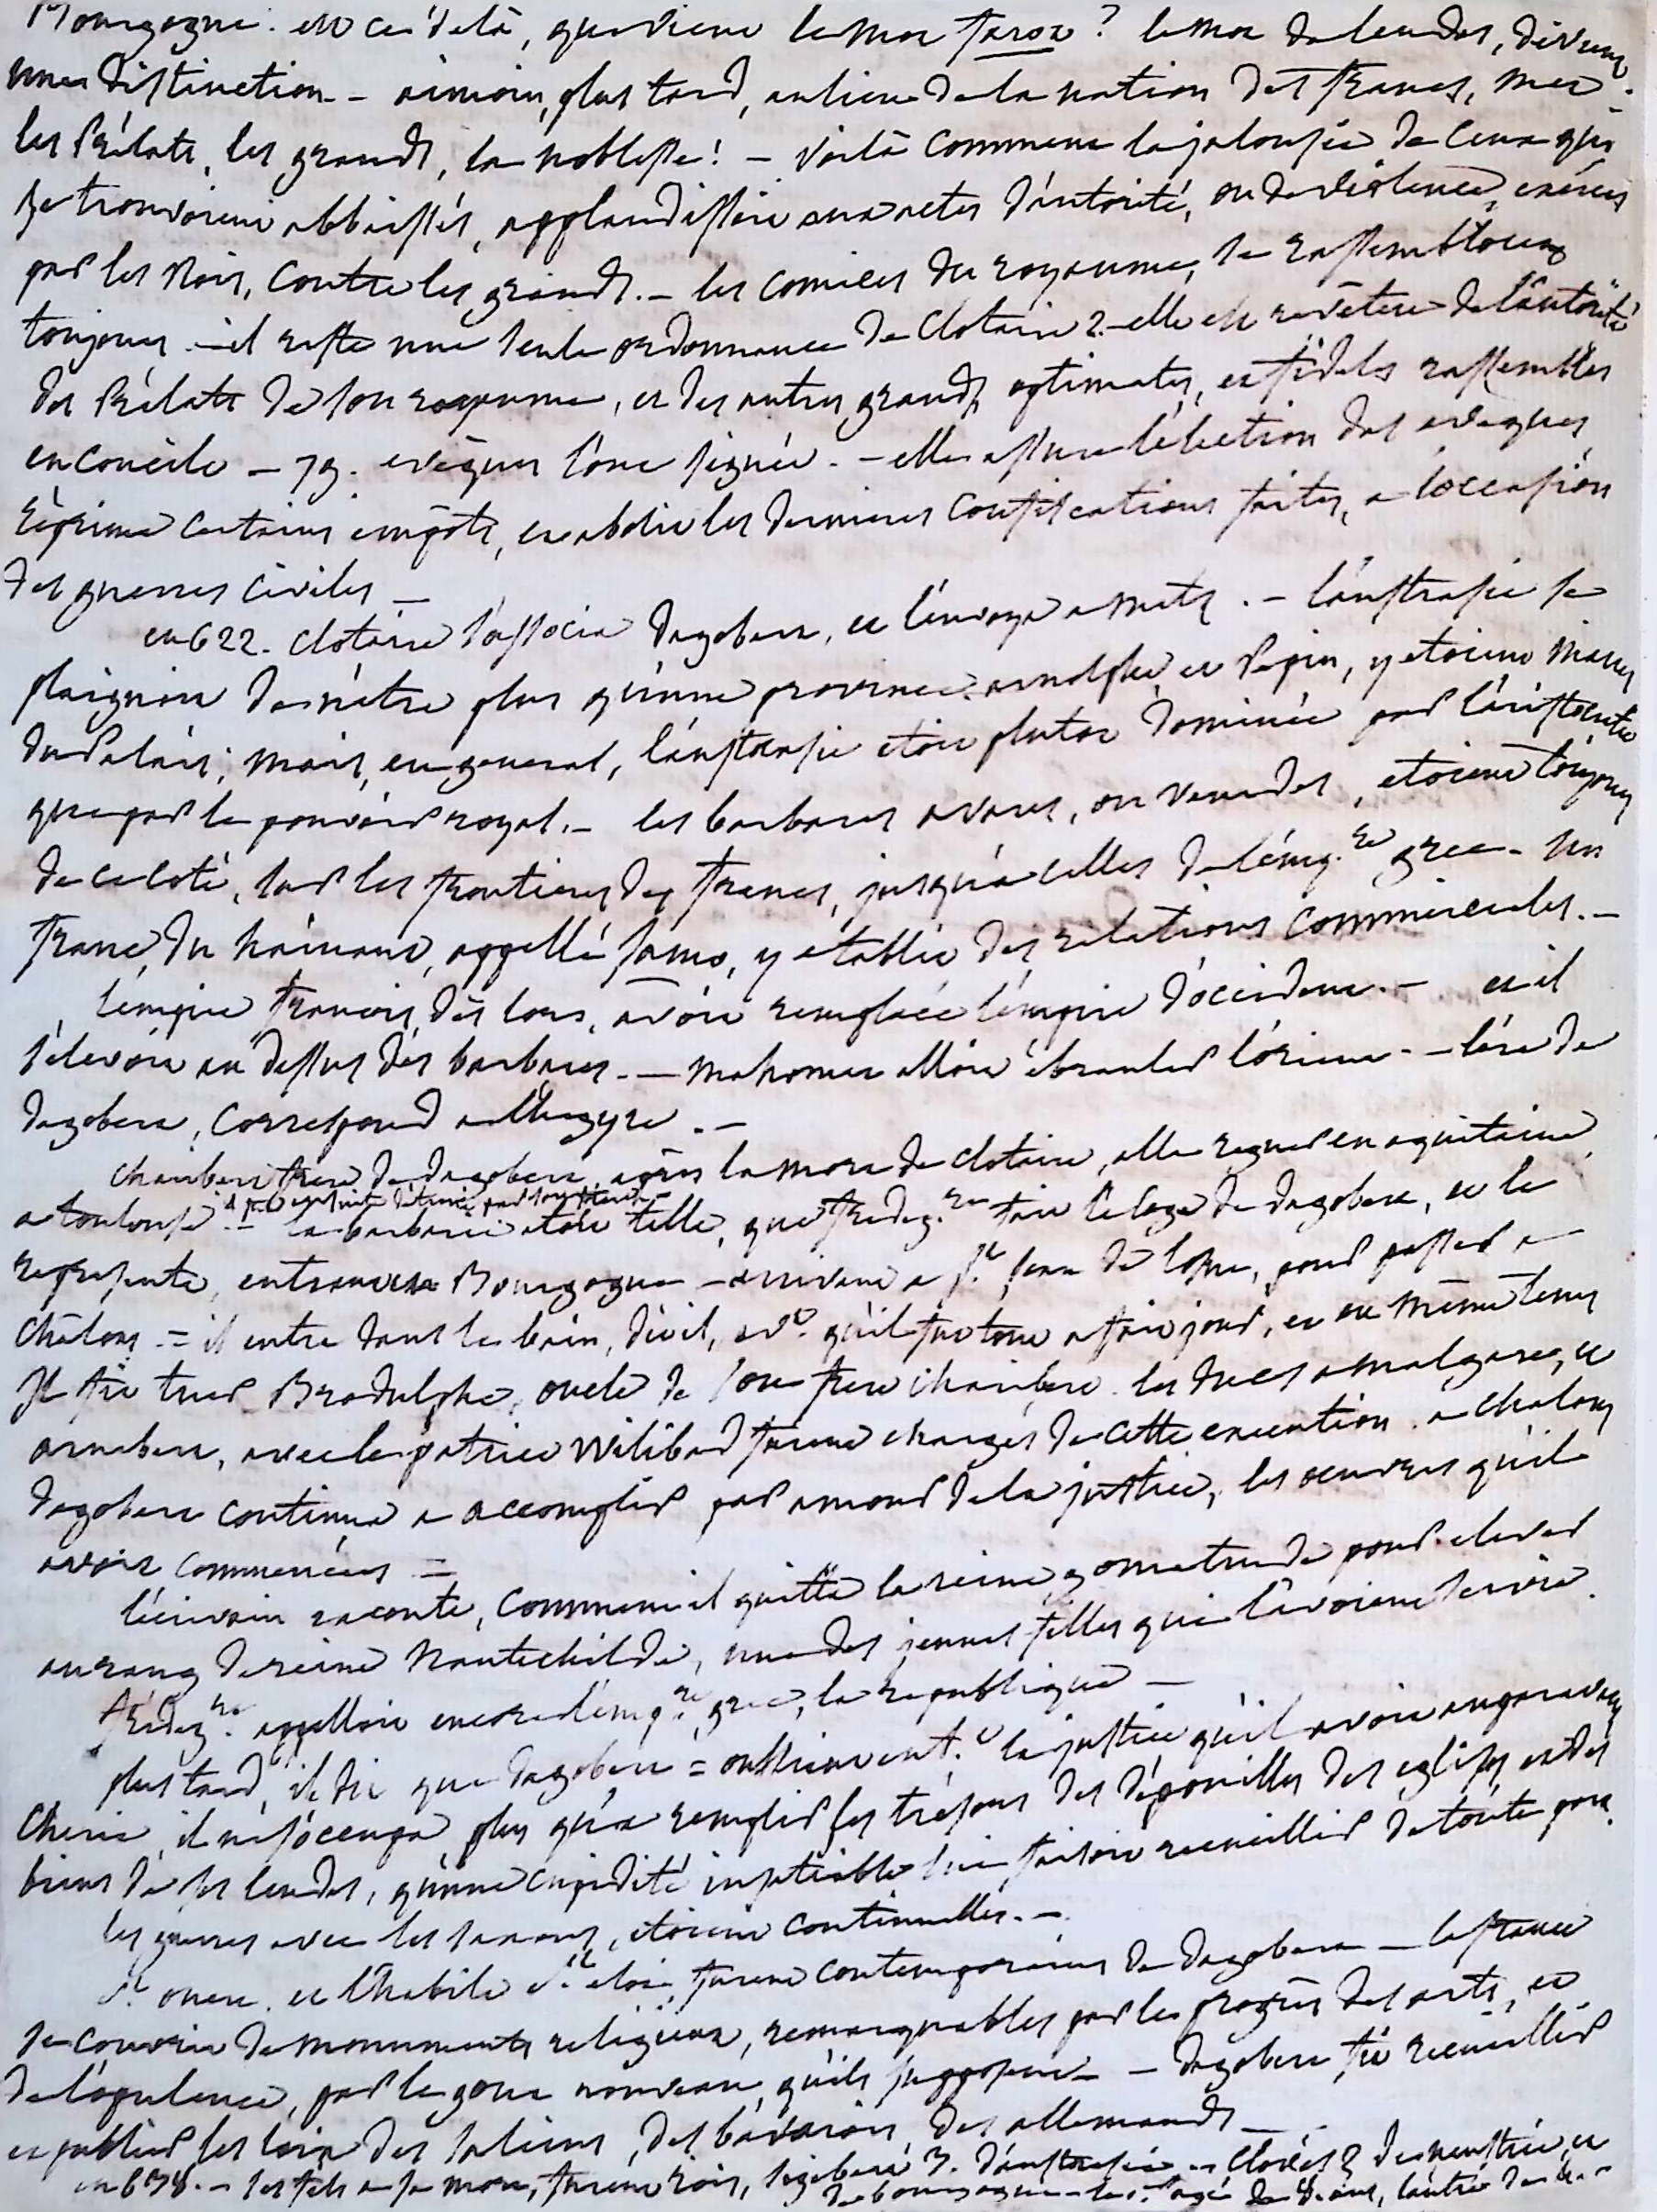 Bourgogne. est ce de là, que vient le mot faron? le mot de leudes, devint
une distinction - aimoin, plus tard, au lieu de la nation des francs, met
les Prélats, les grands, la noblesse! - voilà comment la jalousie de ceux qui
se trouvoient abbaissés, applaudissoit aux actes d'autorité, ou de violence, exercés
par les Rois, contre les grands. - les comices du royaume, se rassembloient
toujours - il reste une seule ordonnance de Clotaire 2. - elle est revêtue de l'autorité
des Prélats de son royaume, et des autres grands optimates, et fideles rassemblés
en concile - 79. evêques l'ont signée. - elle assure l'élection des eveques
réprime certains impôts, et abolit les dernieres confiscations faites, a l'occasion
des guerres civiles -
en 622. Clotaire s'associa Dagobert, et l'envoya a metz. - l'austrasie se
plaignoit de n'être plus qu'une province. arnolphe et Pepin, y etoient maires
du Palais; mais, en general, l'austrasie etoit plutot dominée par l'aristocratie
que par le pouvoir royal. - les barbares avares, ou venedes, etoient toujours
de ce coté, sur les frontieres des francs, jusqu'a celles de l'emp.re grec - un
franc, du hainaut, appellé samo, y etablit des relations commerciales. -
l'empire francois, dès lors, avoit remplacé l'empire d'occident. - et il
s'elevoit au dessus des barbares. - mahomet alloit ébranler l'orient. - l'ere de
dagobert, correspond a l'hegyre. -
Charibert frere de dagobert, après la mort de clotaire, alla regner en aquitaine
il fut ensuite détruit par son frere -
a toulouse - la barbarie etoit telle, que fredeg.re fait l'eloge de dagobert, et le
represente, entrant en Bourgogne - arrivant a st. jean de losne, pour passer a
Châlons = il entra dans le bain, dit il, avt. qu'il fut tout a fait jour, et en même tems
Il fit tuer Brodulphe, oncle de son frere charibert. les ducs amalgaire, et
arnebert, avec le patrice Wilibad furent chargés de cette execution. a chalons
dagobert continua a accomplir par amour de la justice, les oeuvres qu'il
avoit commencées =
l'écrivain raconte, comment il quitta la reine gomatrude pour elever
au rang de reine Nantechilde, une des jeunes filles qui l'avoient servie.
fredeg.re appelloit encore l'emp.re grec, la republique -
plus tard, il dit que dagobert = oubliant ent.t la justice qu'il avoit auparavant
cherie, il ne s'occupa plus qu'a remplir ses trésors des dépouilles des eglises et des
biens de ses leudes, qu'une cupidité insatiable lui faisoit recueillir de toute part.
les guerres avec les saxons, etoient continuelles. -
st. ouen. et l'habile st. eloi, furent contemporains de dagobert - la france
se couvrit de monuments religieux, remarquables par les progrès des arts, et
de l'opulence, par le gout nouveau qu'ils supposent - dagobert fit recueillir
et publier les loix des saliens, des bavarois des allemands -
en 638. - ses fils a sa mort, furent rois, sigebert 3. d'austrasie - Clovis 2 de neustrie, et
de bourgogne - le 1er. agé de 8 ans, l'autre de